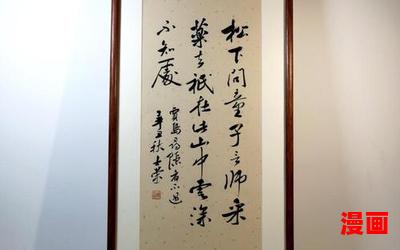 松下问童子言师采
药去祇在此山中云深
不知处
贾岛寻隐者不遇
辛丑秋士荣
漫画